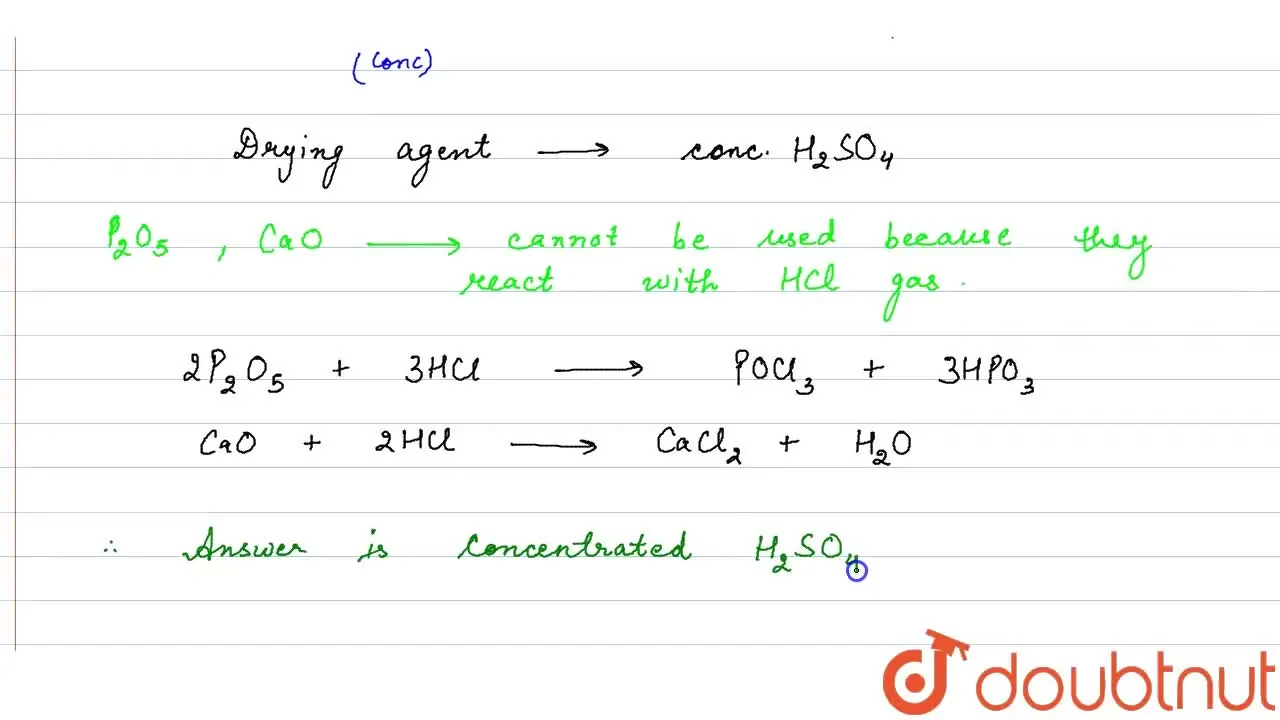 (conc)
Drying agent → conc. H₂SO₄
P₂O₅ , CaO → cannot be used because they
react with HCl gas.
2P₂O₅ + 3HCl → POCl₃ + 3HPO₃
CaO + 2HCl → CaCl₂ + H₂O
∴ Answer is Concentrated H₂SO₄
doubtnut